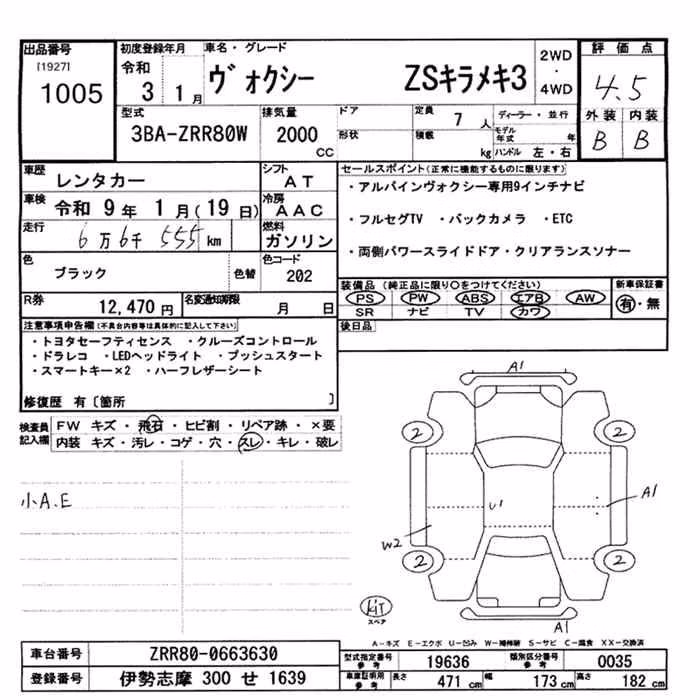 出品番号
[1927]
1005
初度登録年月
令和
3 1月
車名・グレード
ヴォクシー ZSキラメキ3
2WD
・
4WD
評価点
4.5
外装 内装
B B
型式
3BA-ZRR80W
排気量
2000
CC
ドア
形状
定員 7人
積載 kg
ディーラー・並行
モデル年式 年
ハンドル 左・右
車歴
レンタカー
シフト
AT
車検
令和 9年 1月(19日)
冷房
AAC
走行
6万6千555km
燃料
ガソリン
色
ブラック
色替
色コード
202
R券
12,470円
名変通知期限
月 日
セールスポイント(正常に機能するものに限ります)
・アルパインヴォクシー専用9インチナビ
・フルセグTV ・バックカメラ ・ETC
・両側パワースライドドア・クリアランスソナー
装備品(純正品に限り〇をつけてください)
PS PW ABS エアB AW
SR ナビ TV カワ
新車保証書
有・無
後日品
注意事項申告欄(不具合内容等は具体的に記入して下さい)
・トヨタセーフティセンス ・クルーズコントロール
・ドラレコ ・LEDヘッドライト ・プッシュスタート
・スマートキー×2 ・ハーフレザーシート
修復歴 有〔箇所 〕
検査員
記入欄
FW キズ・飛石・ヒビ割・リペア跡・×要
内装 キズ・汚レ・コゲ・穴・スレ・キレ・破レ
小A.E
A1
2 2
U1
A1
W2
2 2
KiT
スペア
A1
A-キズ E-エクボ U-凹み W-補修跡 S-サビ C-腐食 XX-交換済
車台番号
ZRR80-0663630
登録番号
伊勢志摩 300 せ 1639
型式指定番号
参考
19636
類別区分番号
参考
0035
車庫証明用
参考
長さ 471 cm
幅 173 cm
高さ 182 cm